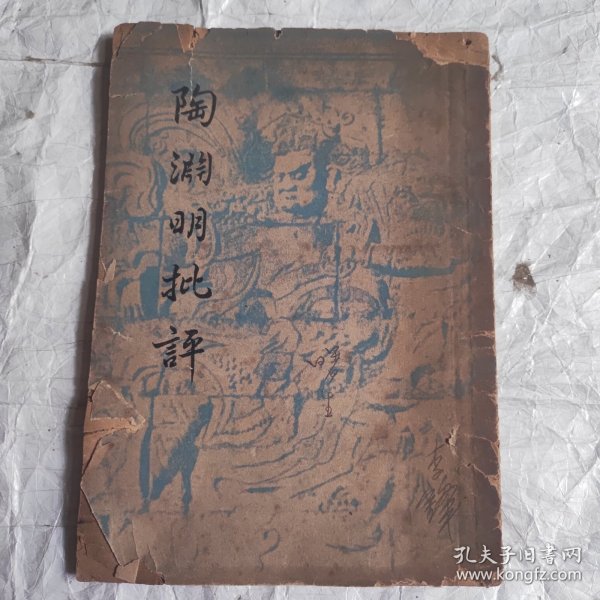 陶淵明批評
孔夫子旧书网
www.kongfz.com